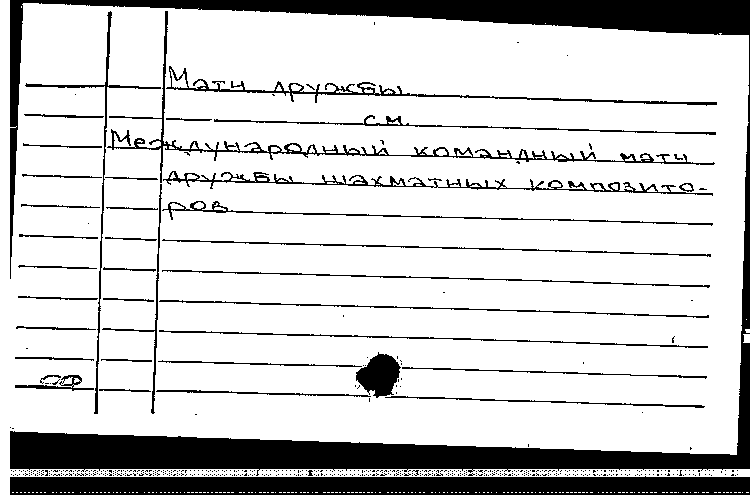 Матч дружбы
см.
Международный командный матч
дружбы шахматных композито-
ров